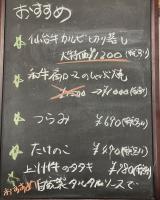 おすすめ
仙台牛カルビ切り落し
大特価¥1,200(税別)
和牛肩ロースのしゃぶ焼
→¥1,000(税別)
つらみ ¥690(税別)
たけのこ ¥490(税別)
上州牛のタタキ ¥980(税別)
おすすめ 自家製タルタルソースで